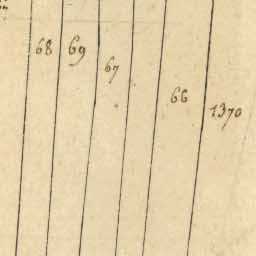 68
69
67
66
1370